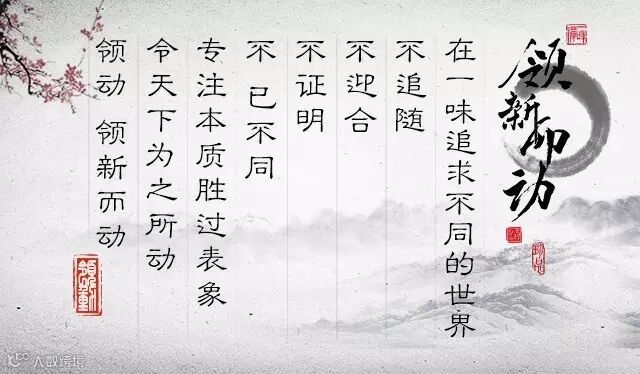 领新而动
在一味追求不同的世界
不追随
不迎合
不证明
不 已不同
专注本质胜过表象
令天下为之所动
领动 领新而动
大数跨境